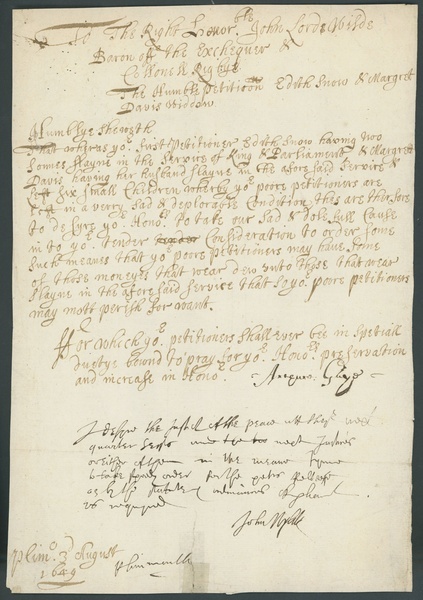 To The Right Honor.ble John Lorde Wilde
Baron off the Exchequer &
Collonell Rigbye
The Humble Petition Edith Snow & Margrett
Davis Widdow
Humblye Sheweth
That wheras yor. first Petitioner Edith Snow having two
Sonnes slayne in the Servics of King & Parliament & Margrett
Davis having her husband slayne in the afore said Servics &
left six small Children wherby yor poore petitioners are
left in a verry sad & deplorable Condition thes are therfore
to desyre yor. Honors. To take our Sad & dolefull Cause
in to yor. tender Consideration to order some
such meanes that yor poore petitioners may have some
of those moneys that wear dew unto those that wear
slayne in the afore said service that so yor. poore petitioners
may nott perish for want.
For which yor. petitioners shall ever bee in speciall
dutye bound to pray for yor. Honors. preservation
and increase in Honor.
I desyre the justices of the peace att there next
quarter sessions next Justices
or either of them in the meane tyme
to take order for the petrs releife
as by the statute
is required
John Wylde
Plimo. 3d August
1649
Plimmouth